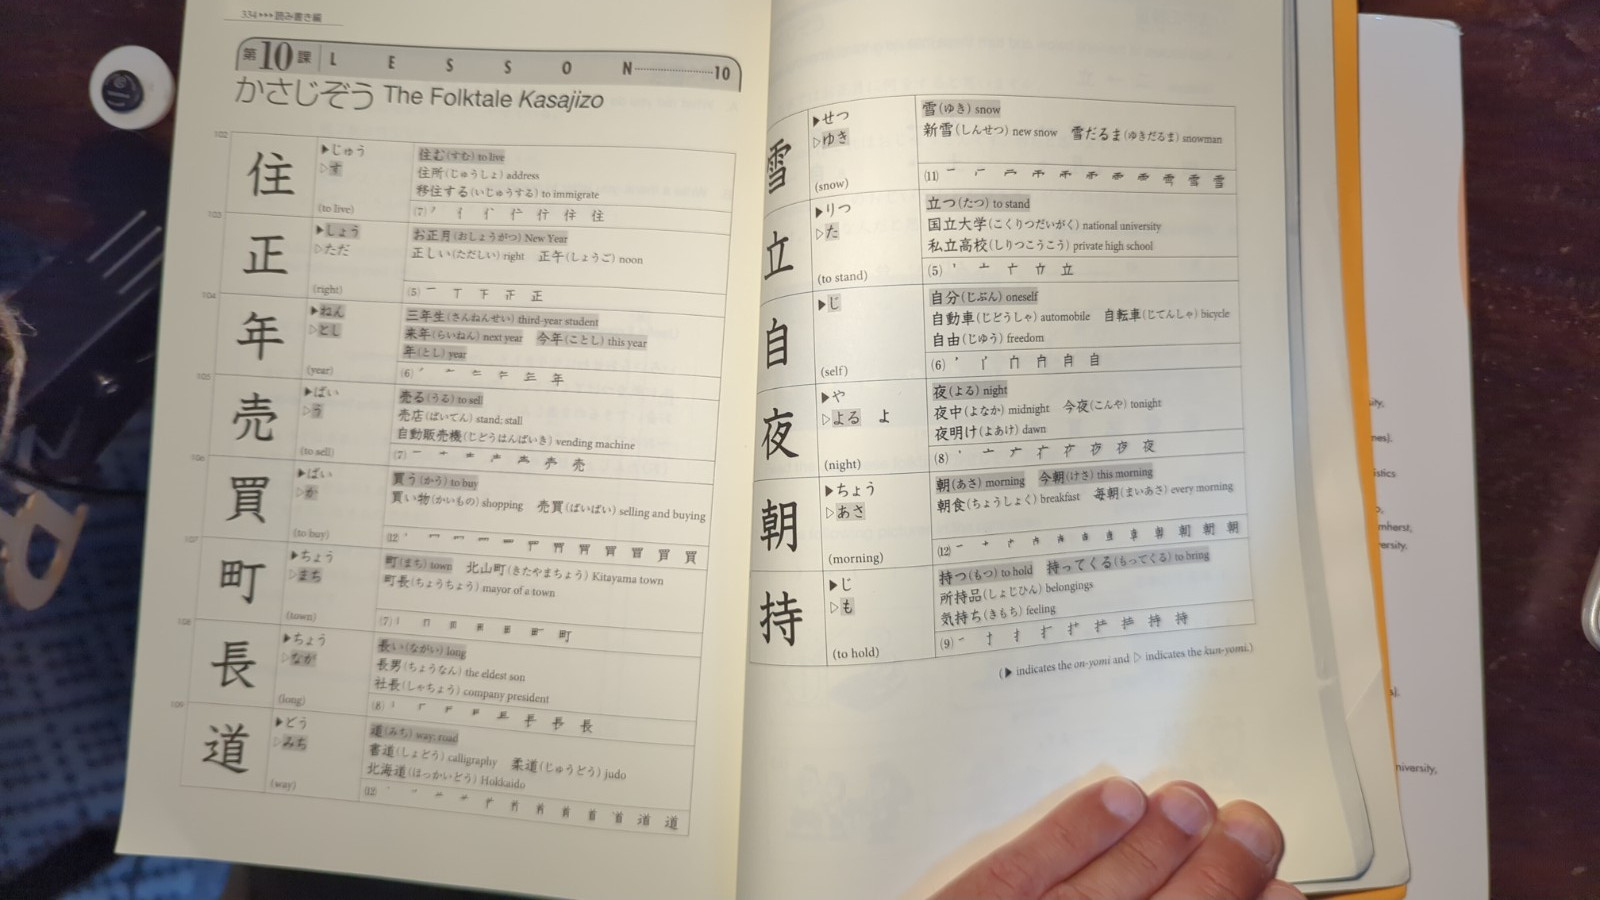 334▸▸▸読み書き編
第10課 LESSON 10
かさじぞう The Folktale Kasajizo
102
住
▶じゅう
▷す
(to live)
住む(すむ) to live
住所(じゅうしょ) address
移住する(いじゅうする) to immigrate
(7)
103
正
▶しょう
▷ただ
(right)
お正月(おしょうがつ) New Year
正しい(ただしい) right 正午(しょうご) noon
(5)
104
年
▶ねん
▷とし
(year)
三年生(さんねんせい) third-year student
来年(らいねん) next year 今年(ことし) this year
年(とし) year
(6)
105
売
▶ばい
▷う
(to sell)
売る(うる) to sell
売店(ばいてん) stand; stall
自動販売機(じどうはんばいき) vending machine
(7)
106
買
▶ばい
▷か
(to buy)
買う(かう) to buy
買い物(かいもの) shopping 売買(ばいばい) selling and buying
(12)
107
町
▶ちょう
▷まち
(town)
町(まち) town 北山町(きたやまちょう) Kitayama town
町長(ちょうちょう) mayor of a town
(7)
108
長
▶ちょう
▷なが
(long)
長い(ながい) long
長男(ちょうなん) the eldest son
社長(しゃちょう) company president
(8)
109
道
▶どう
▷みち
(way)
道(みち) way; road
書道(しょどう) calligraphy 柔道(じゅうどう) judo
北海道(ほっかいどう) Hokkaido
(12)
雪
▶せつ
▷ゆき
(snow)
雪(ゆき) snow
新雪(しんせつ) new snow 雪だるま(ゆきだるま) snowman
(11)
立
▶りつ
▷た
(to stand)
立つ(たつ) to stand
国立大学(こくりつだいがく) national university
私立高校(しりつこうこう) private high school
(5)
自
▶じ
(self)
自分(じぶん) oneself
自動車(じどうしゃ) automobile 自転車(じてんしゃ) bicycle
自由(じゆう) freedom
(6)
夜
▶や
▷よる よ
(night)
夜(よる) night
夜中(よなか) midnight 今夜(こんや) tonight
夜明け(よあけ) dawn
(8)
朝
▶ちょう
▷あさ
(morning)
朝(あさ) morning 今朝(けさ) this morning
朝食(ちょうしょく) breakfast 毎朝(まいあさ) every morning
(12)
持
▶じ
▷も
(to hold)
持つ(もつ) to hold 持ってくる(もってくる) to bring
所持品(しょじひん) belongings
気持ち(きもち) feeling
(9)
(▶ indicates the on-yomi and ▷ indicates the kun-yomi.)